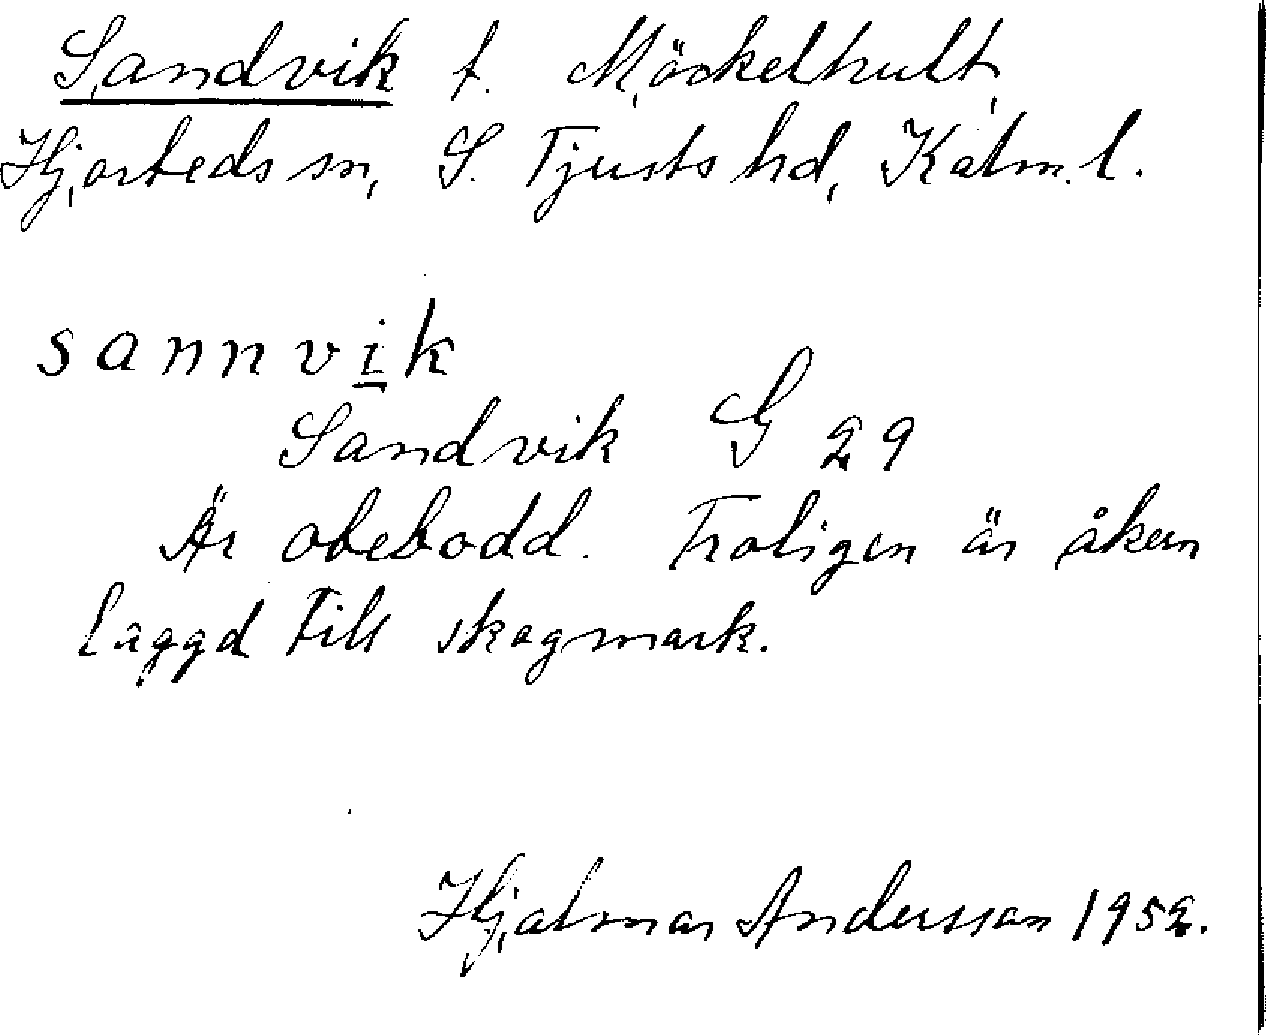 Sandvik t. Möckelhult,
Hjorteds sn, S. Tjusts hd, Kalm. l.
sannvik
Sandvik G 29
Är obebodd. Troligen är åkern
laggd till skogmark.
Hjalmar Andersson 1952.